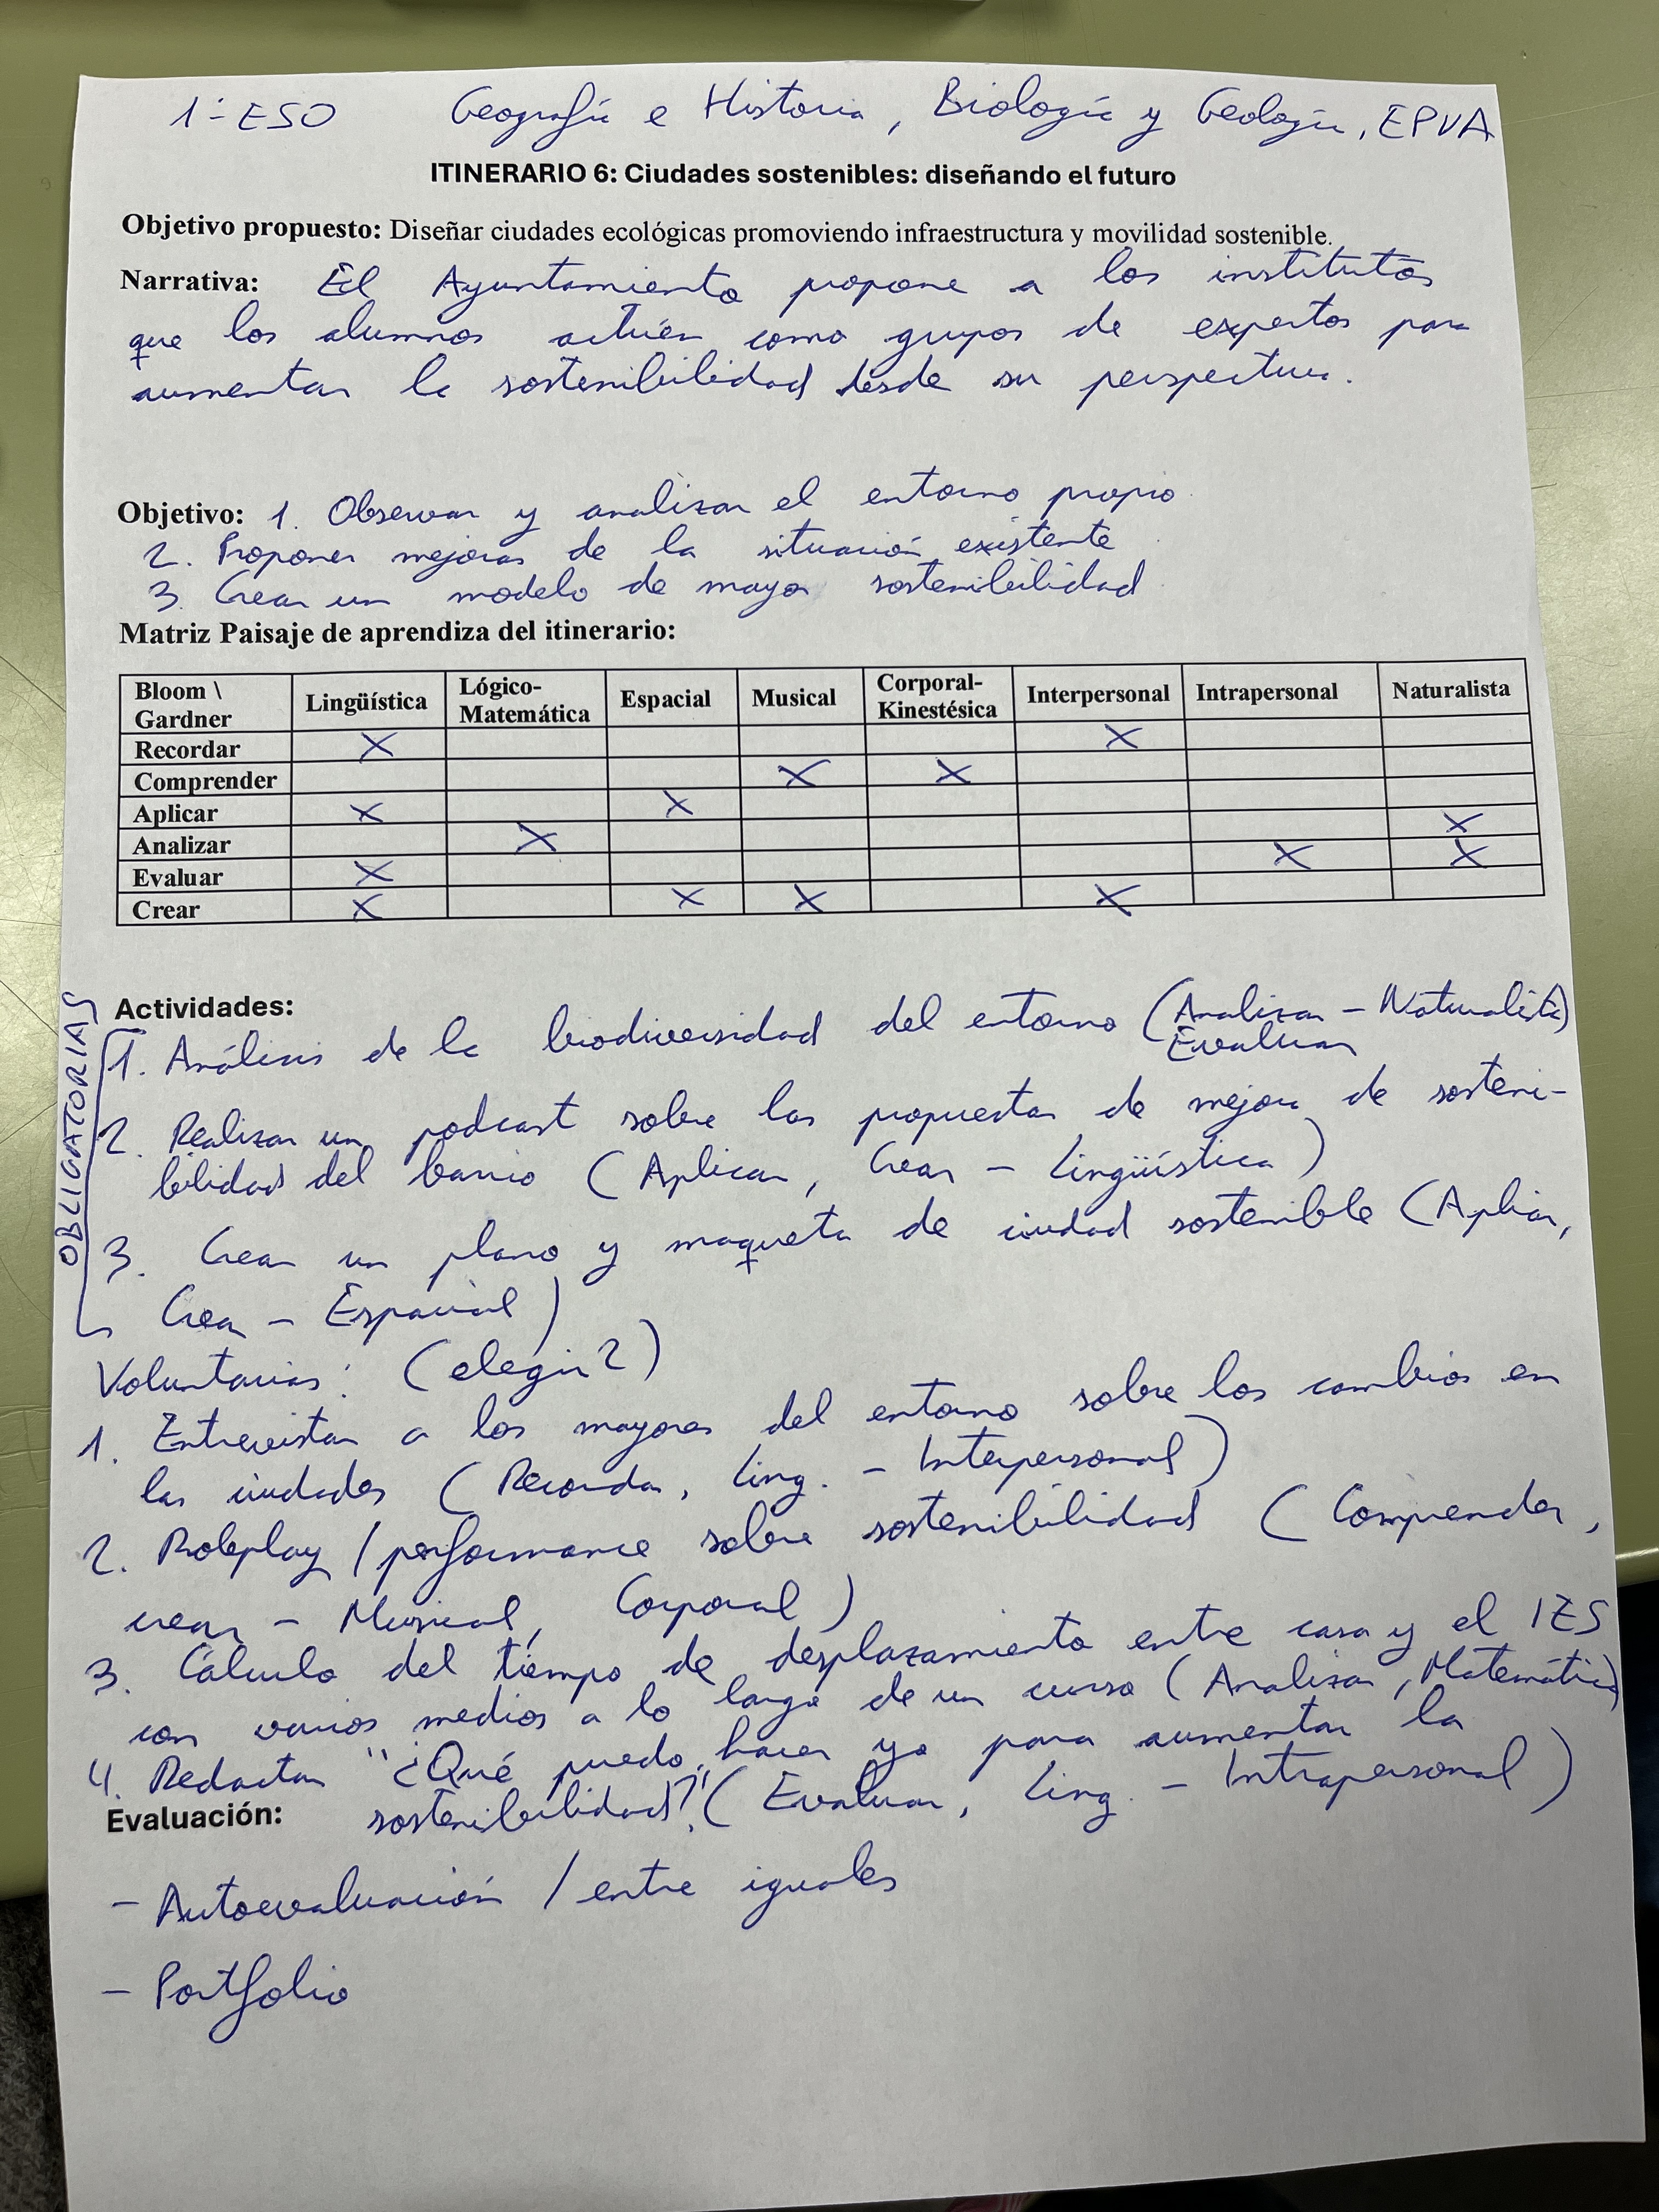 1º ESO Geografía e Historia, Biología y Geología, EPVA
ITINERARIO 6: Ciudades sostenibles: diseñando el futuro
Objetivo propuesto: Diseñar ciudades ecológicas promoviendo infraestructura y movilidad sostenible.
Narrativa: El Ayuntamiento propone a los institutos
que los alumnos actúen como grupos de expertos para
aumentar la sostenibilidad desde su perspectiva.
Objetivo: 1. Observar y analizar el entorno propio
2. Proponer mejoras de la situación existente
3. Crear un modelo de mayor sostenibilidad
Matriz Paisaje de aprendiza del itinerario:
Bloom \ Gardner Lingüística Lógico-Matemática Espacial Musical Corporal-Kinestésica Interpersonal Intrapersonal Naturalista
Recordar X X
Comprender X X
Aplicar X X
Analizar X X
Evaluar X X X
Crear X X X X
OBLIGATORIAS
Actividades:
1. Análisis de la biodiversidad del entorno (Analizar - Naturalista)
Evaluar
2. Realizar un podcast sobre las propuestas de mejora de sosteni-
bilidad del barrio (Aplicar, Crear - Lingüística)
3. Crear un plano y maqueta de ciudad sostenible (Aplicar,
Crear - Espacial)
Voluntarias: (elegir 2)
1. Entrevistar a los mayores del entorno sobre los cambios en
las ciudades (Recordar, Ling. - Interpersonal)
2. Roleplay / performance sobre sostenibilidad (Comprender,
crear - Musical, Corporal)
3. Cálculo del tiempo de desplazamiento entre casa y el IES
con varios medios a lo largo de un curso (Analizar, Matemática)
4. Redactar "¿Qué puedo hacer yo para aumentar la
sostenibilidad?" (Evaluar, Ling. - Intrapersonal)
Evaluación:
- Autoevaluación / entre iguales
- Portfolio